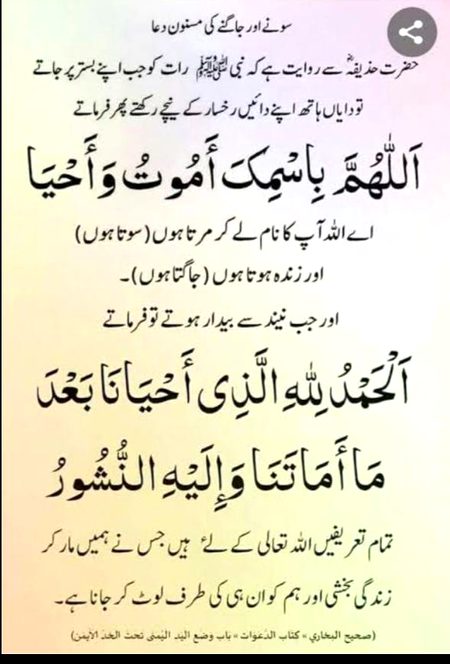 سونے اور جاگنے کی مسنون دعا
حضرت حذیفہؓ سے روایت ہے کہ نبی ﷺ رات کو جب اپنے بستر پر جاتے
تو دایاں ہاتھ اپنے دائیں رخسار کے نیچے رکھتے پھر فرماتے
اَللّٰهُمَّ بِاسْمِکَ أَمُوتُ وَأَحْیَا
اے اللہ آپ کا نام لے کر مرتا ہوں (سوتا ہوں)
اور زندہ ہوتا ہوں (جاگتا ہوں)۔
اور جب نیند سے بیدار ہوتے تو فرماتے
اَلْحَمْدُ لِلّٰهِ الَّذِی أَحْیَانَا بَعْدَ
مَا أَمَاتَنَا وَإِلَیْهِ النُّشُورُ
تمام تعریفیں اللہ تعالی کے لئے ہیں جس نے ہمیں مار کر
زندگی بخشی اور ہم کو ان ہی کی طرف لوٹ کر جانا ہے۔
(صحيح البخاري » كتاب الدعوات » باب وضع اليد اليمنى تحت الخد الأيمن)